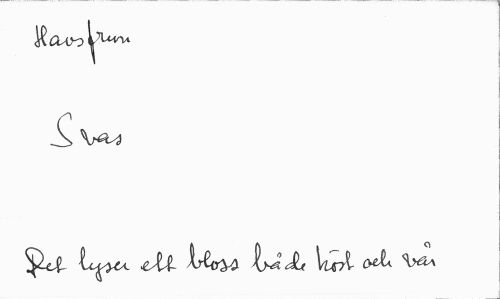 Havsfrun
Svas
Det lyser ett bloss både höst och vår